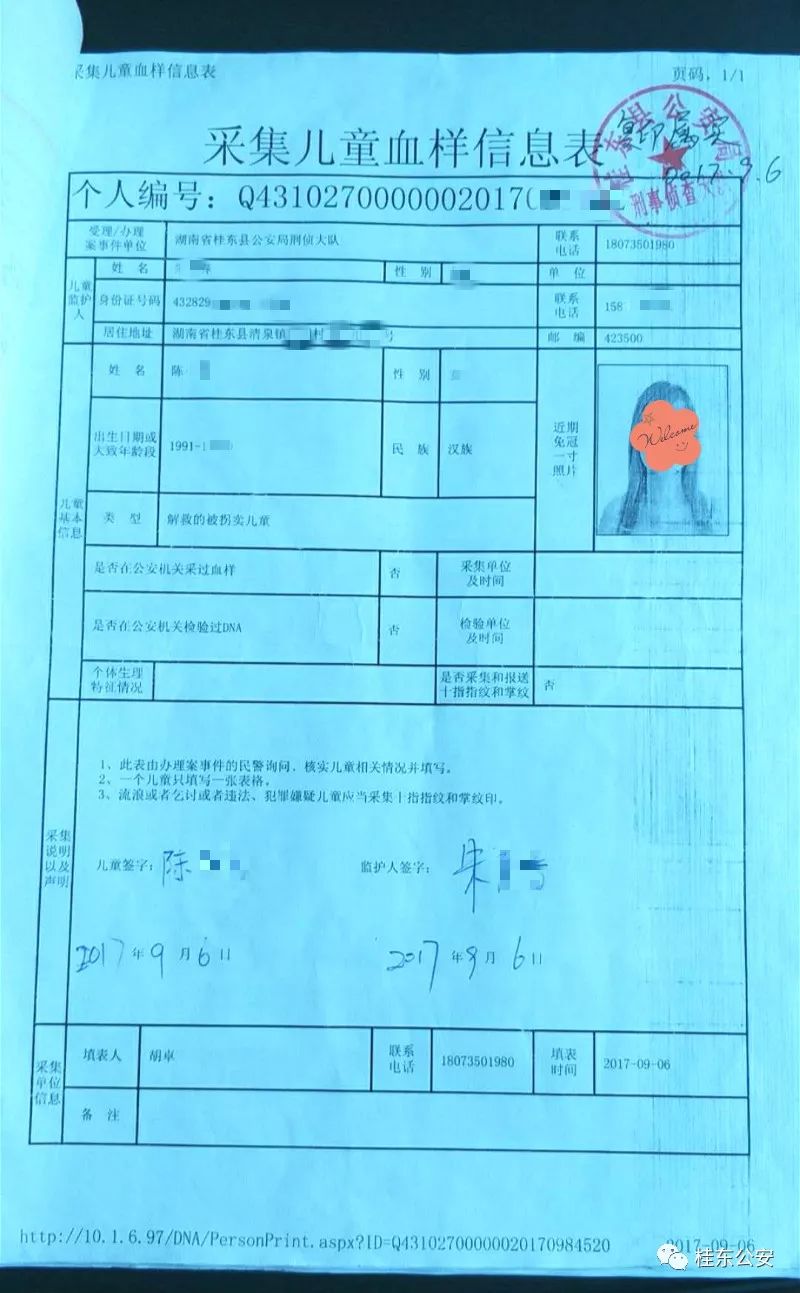 采集儿童血样信息表
页码，1/1
采集儿童血样信息表
县公安局
刑事侦查
复印属实
2017.9.6
个人编号：Q4310270000002017
受理/办理案事件单位 湖南省桂东县公安局刑侦大队 联系电话 18073501980
儿童监护人
姓 名 性 别 单 位
身份证号码 432829 联系电话 158
居住地址 湖南省桂东县清泉镇 村 号 邮 编 423500
儿童基本信息
姓 名 陈 性 别
近期免冠一寸照片
Welcome
出生日期或大致年龄段 1991-1 民 族 汉族
类 型 解救的被拐卖儿童
是否在公安机关采过血样 否 采集单位及时间
是否在公安机关检验过DNA 否 检验单位及时间
个体生理特征情况 是否采集和报送十指指纹和掌纹 否
采集说明以及声明
1、此表由办理案事件的民警询问、核实儿童相关情况并填写。
2、一个儿童只填写一张表格。
3、流浪或者乞讨或者违法、犯罪嫌疑儿童应当采集十指指纹和掌纹印。
儿童签字：陈 监护人签字：朱
2017年9月6日 2017年9月6日
采集单位信息
填表人 胡卓 联系电话 18073501980 填表时间 2017-09-06
备 注
http://10.1.6.97/DNA/PersonPrint.aspx?ID=Q4310270000020170984520
2017-09-06
桂东公安